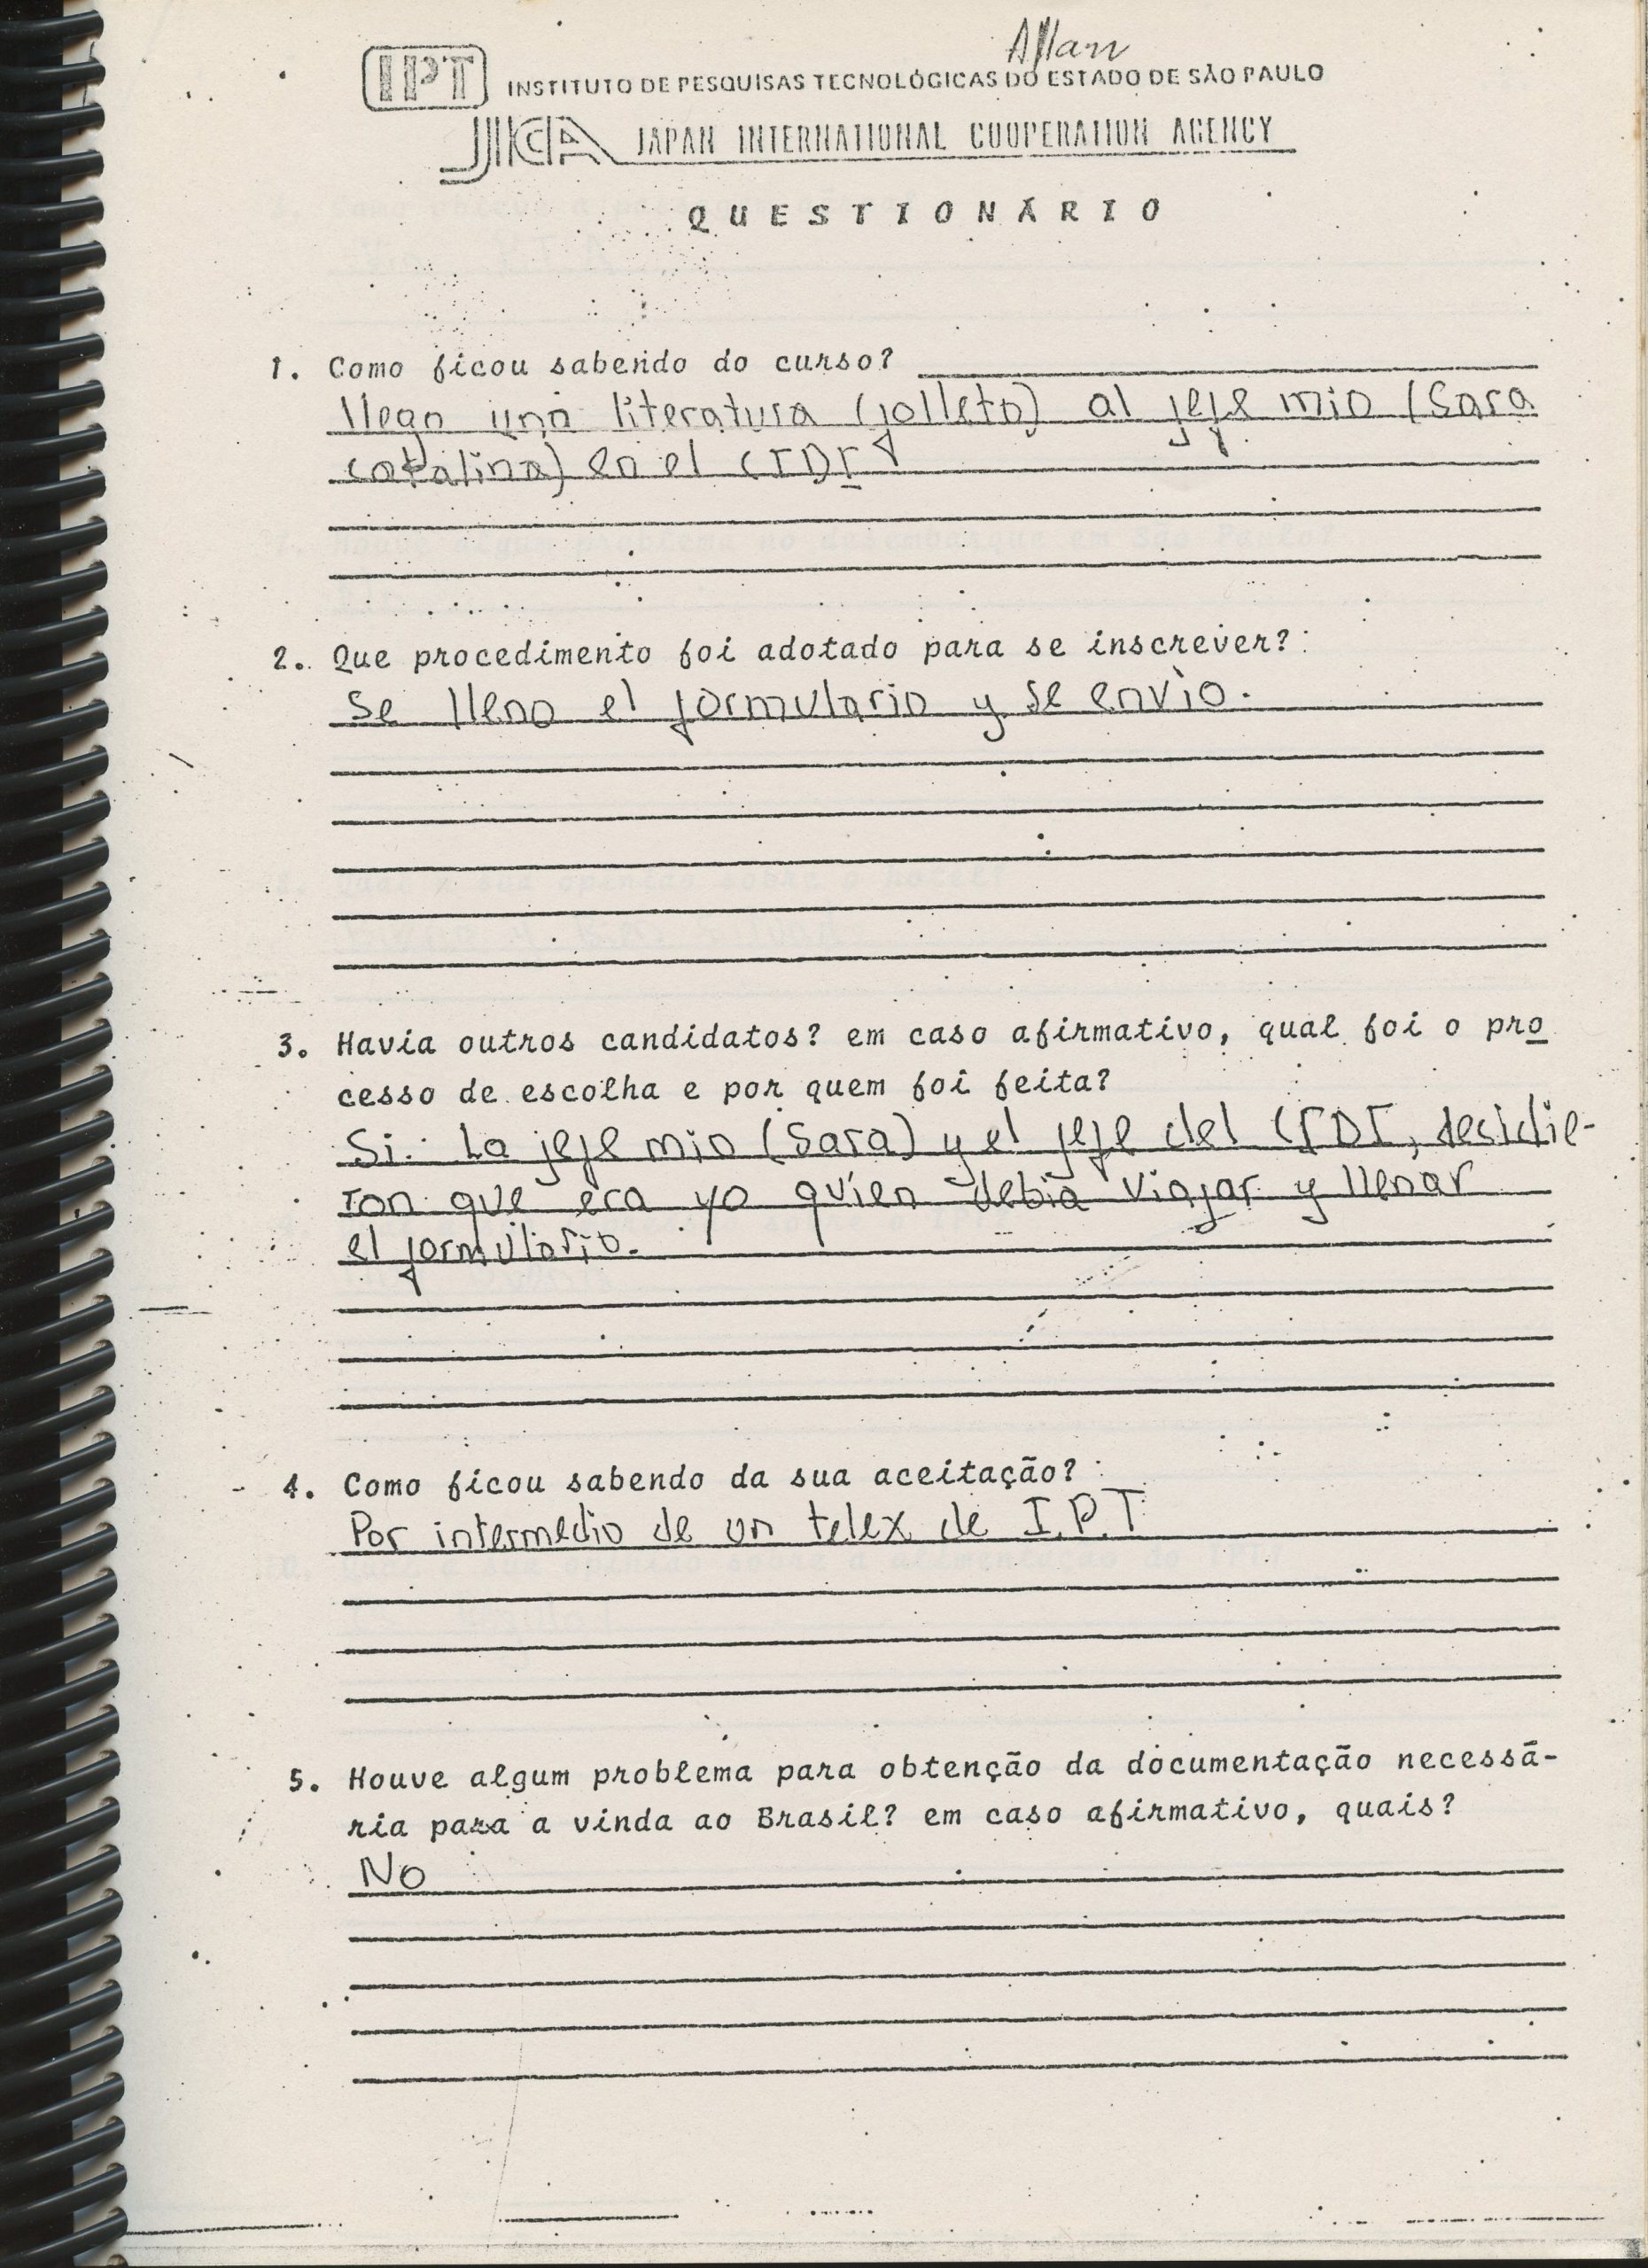 Allan
IPT INSTITUTO DE PESQUISAS TECNOLÓGICAS DO ESTADO DE SÃO PAULO
JICA JAPAN INTERNATIONAL COOPERATION AGENCY
QUESTIONÁRIO
1. Como ficou sabendo do curso?
llego una literatura (folleto) al jefe mio (Sara
Catalina) en el CIDI
2. Que procedimento foi adotado para se inscrever?
Se lleno el formulario y se envio.
3. Havia outros candidatos? em caso afirmativo, qual foi o pro
cesso de escolha e por quem foi feita?
Si. La jefe mio (Sara) y el jefe del CIDI, decidie-
ron que era yo quien debia viajar y llenar
el formulario.
4. Como ficou sabendo da sua aceitação?
Por intermedio de un telex de I.P.T
5. Houve algum problema para obtenção da documentação necessá-
ria para a vinda ao Brasil? em caso afirmativo, quais?
No